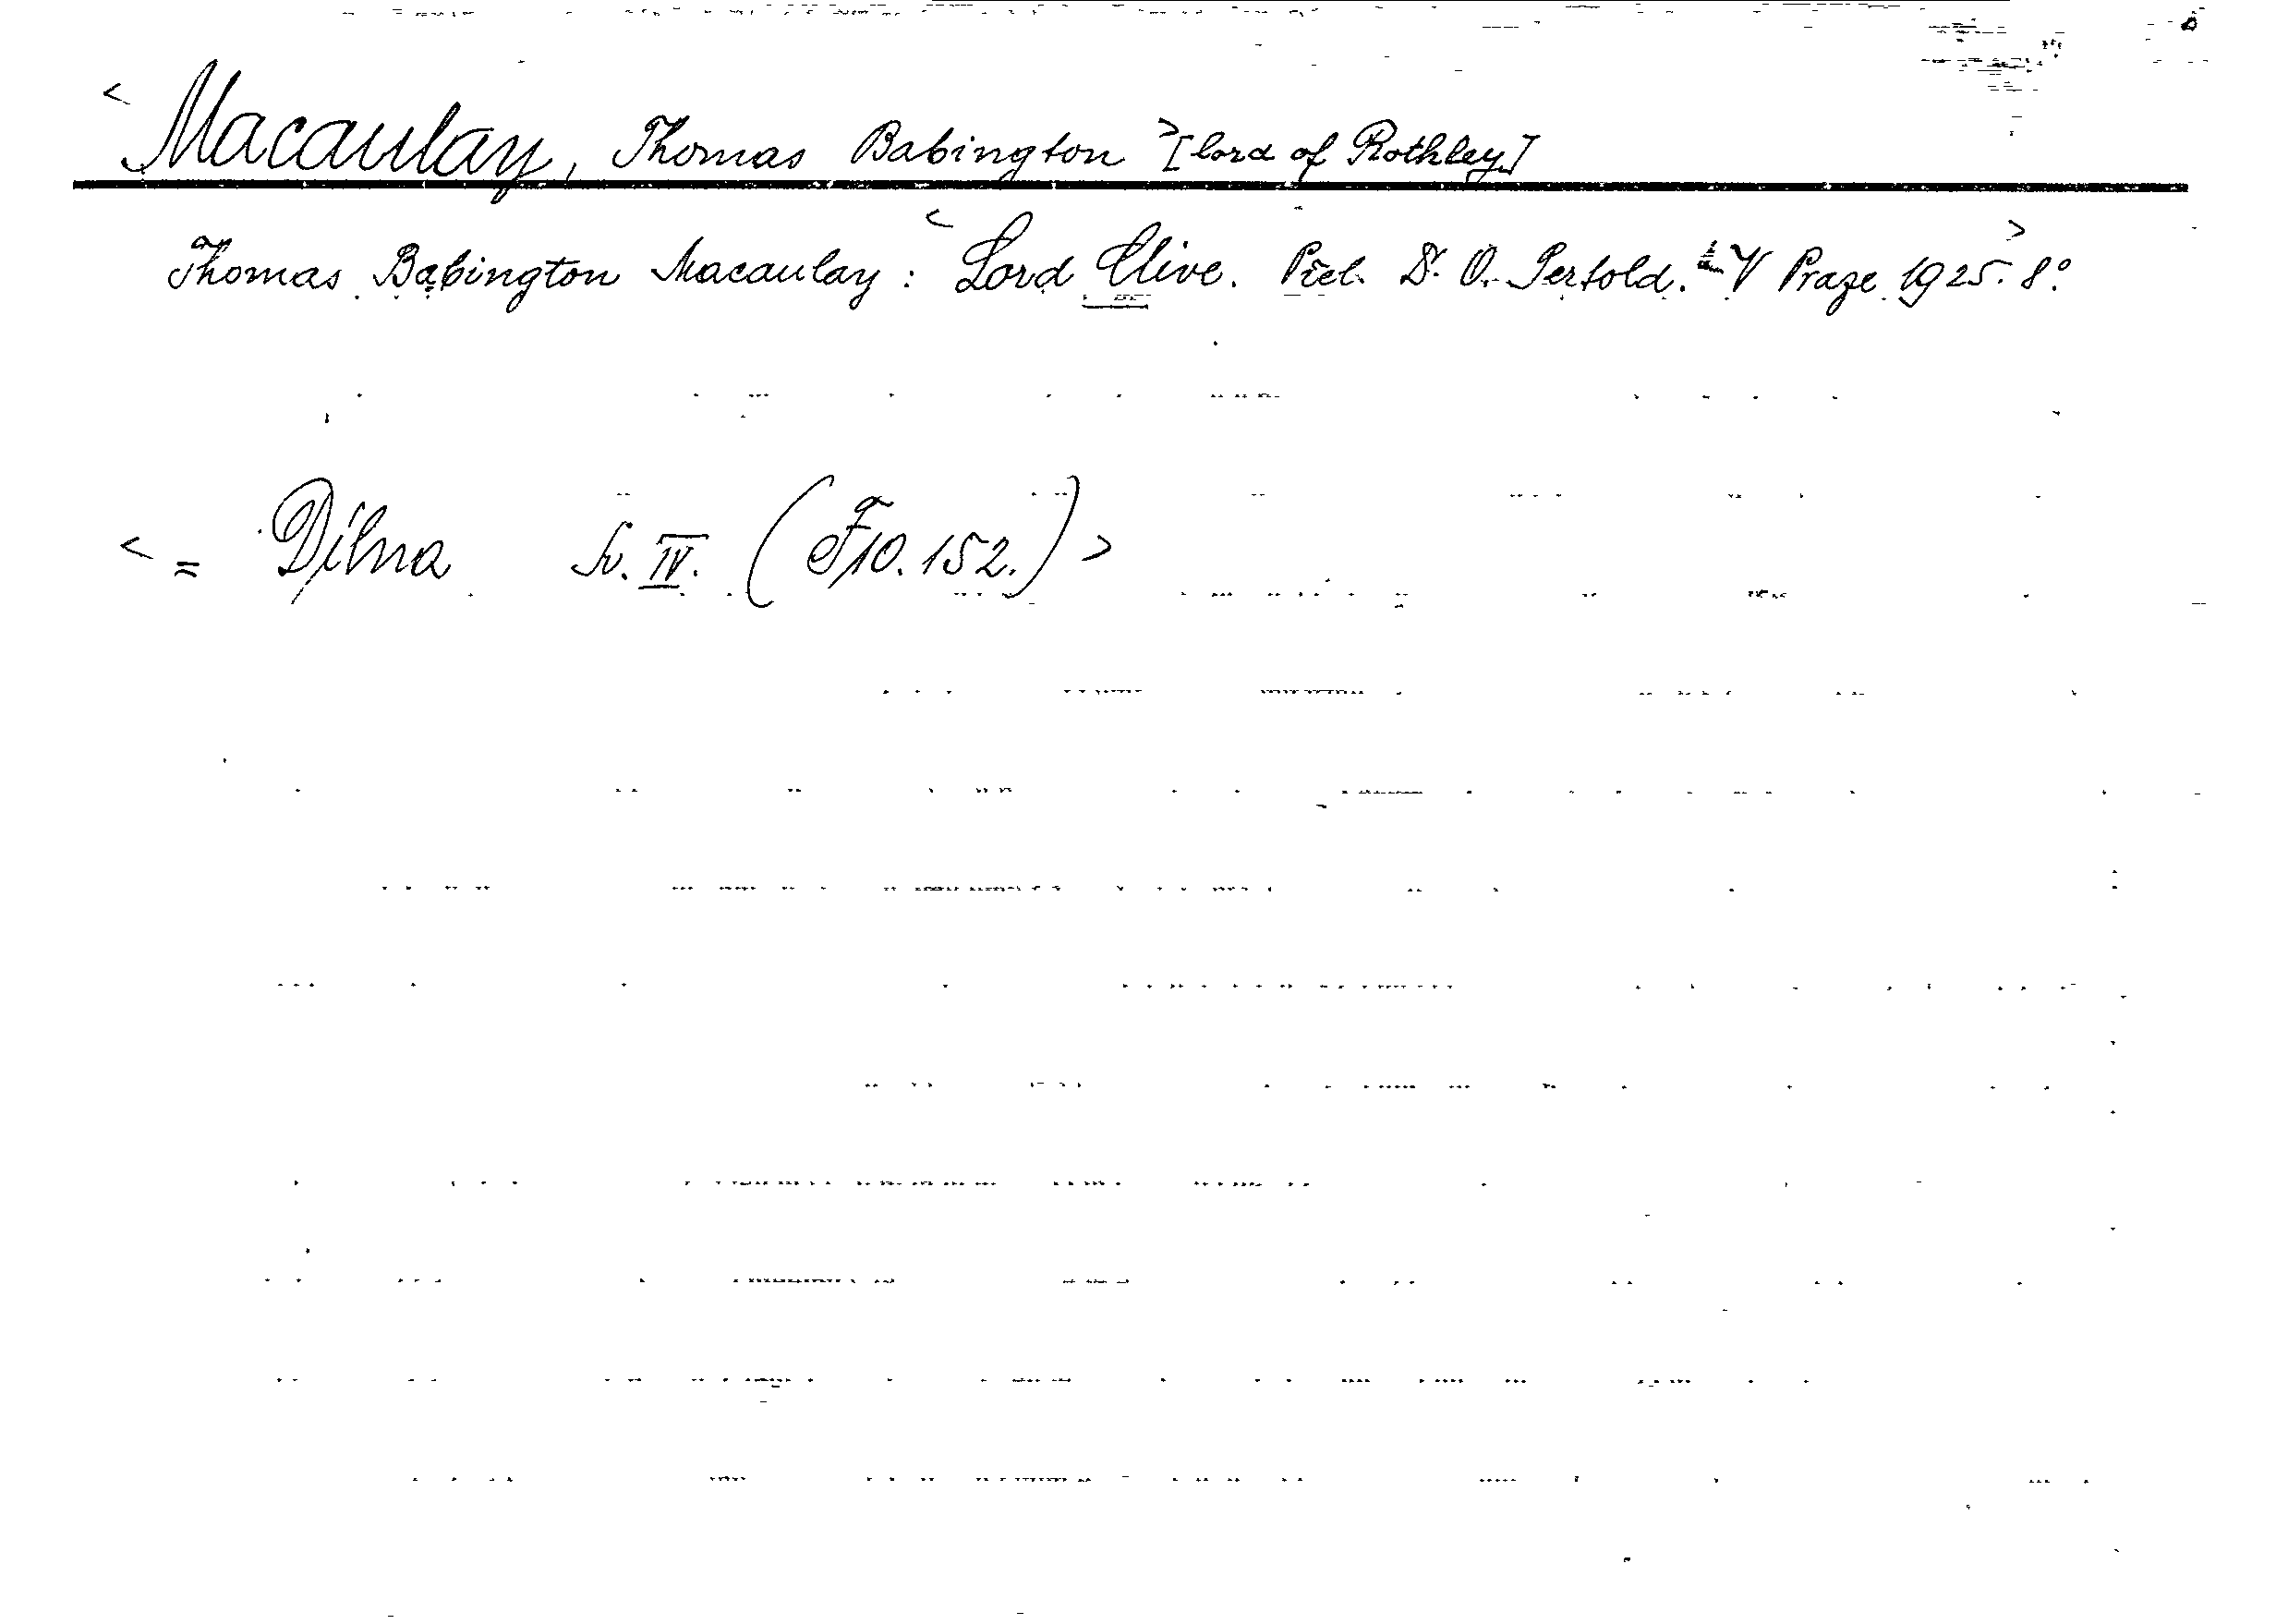 < Macaulay, Thomas Babington > [lord of Rothley]
Thomas Babington Macaulay: < Lord Clive. Přel. Dr. O. Pertold. - V Praze 1925. > 8°.
< = Dílna Sv. IV. (F 10.152.) >